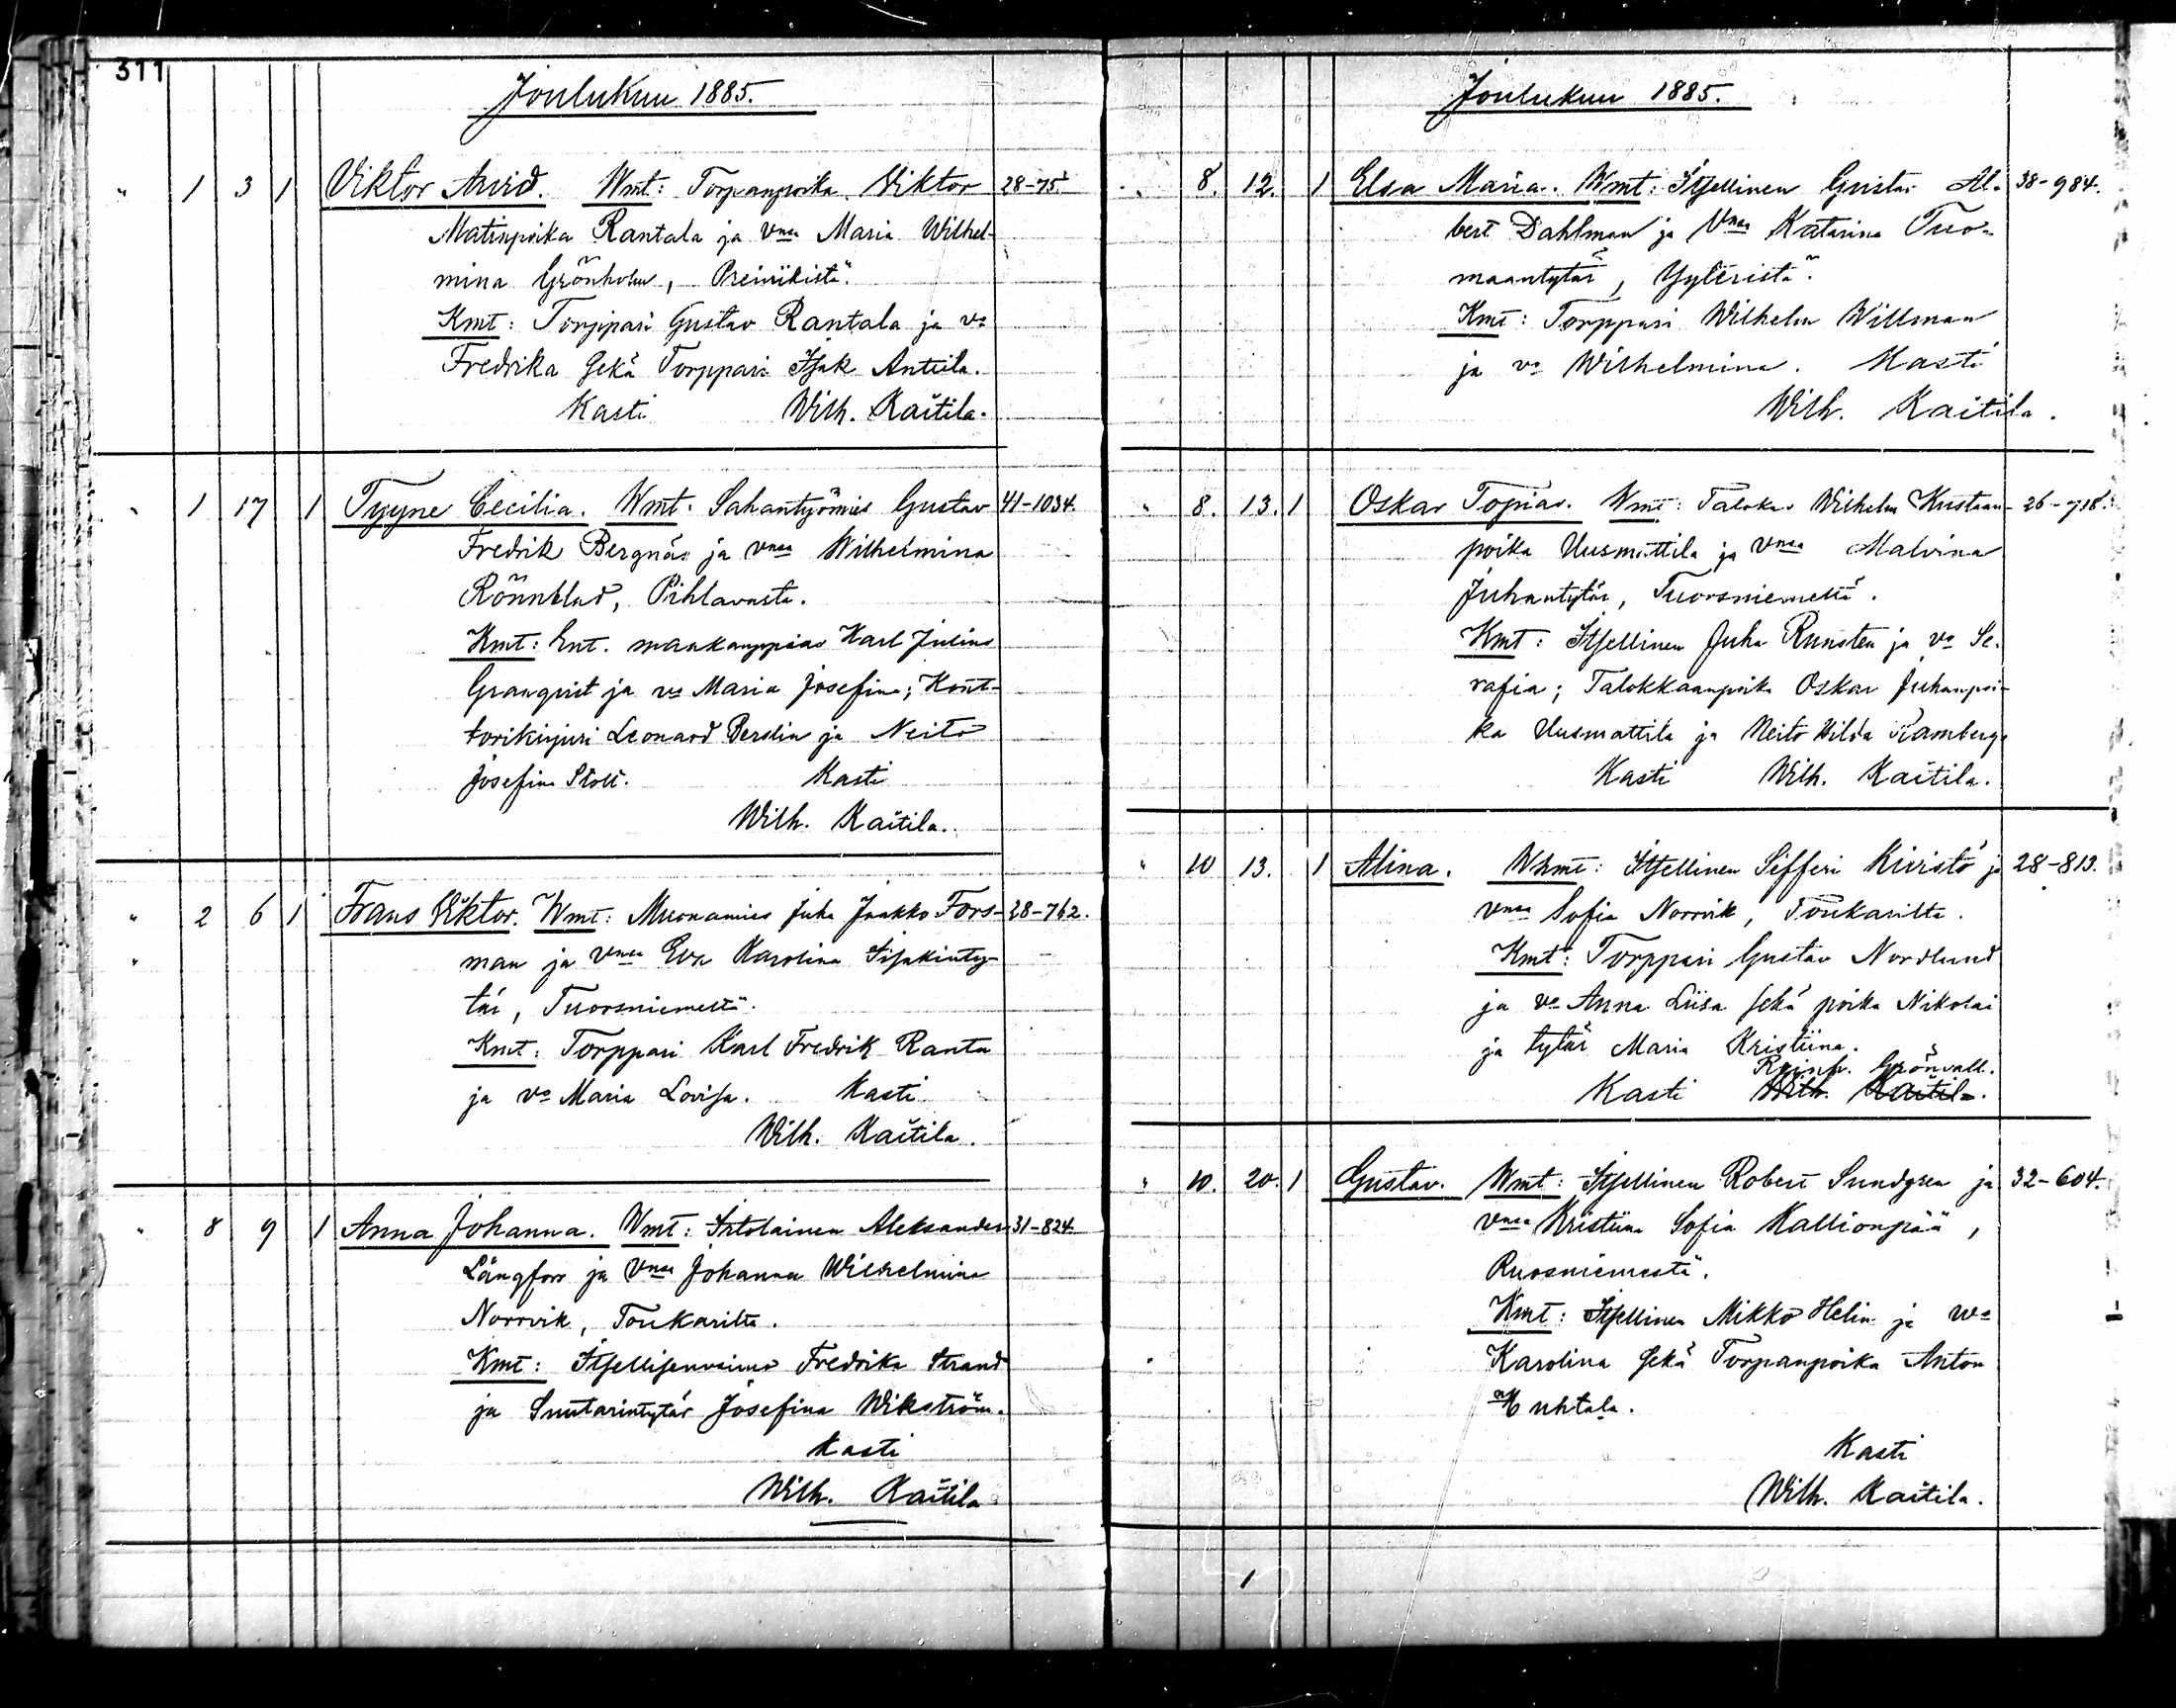 311
Joulukuu 1885.
" 1 3 1 Viktor Arvid. Wmt: Torpanpoika Viktor 28-75
Matinpoika Rantala ja vnsa Maria Wilhel-
mina Grönholm, Preiviikistä.
Kmt: Torppari Gustav Rantala ja va
Fredrika sekä Torppari Isak Anttila.
Kasti Wilh. Kaitila.
" 1 17 1 Tyyne Cecilia. Wmt. Sahantyömies Gustav 41-1034.
Fredrik Bergnäs ja vnsa Wilhelmina
Rönnblad, Pihlavasta.
Kmt: Ent. maakauppias Karl Julius
Granqvist ja va Maria Josefina; Kont-
torikirjuri Leonard Berdin ja Neito
Josefina Stolt. Kasti
Wilh. Kaitila.
" 2 6 1 Frans Viktor. Wmt: Muonamies Juha Jaakko Fors- 28-762.
" man ja vnsa Eva Karolina Iisakinty-
tär, Tuorsniemeltä.
Kmt: Torppari Karl Fredrik Ranta
ja va Maria Lovisa. Kasti
Wilh. Kaitila.
" 8 9 1 Anna Johanna. Wmt: Irtolainen Aleksander 31-824.
Långfors ja vnsa Johanna Wilhelmina
Norrvik, Toukarilta.
Kmt: Itsellisenvaimo Fredrika Strand
ja Suutarintytär Josefina Wikström.
Kasti
Wilh. Kaitila
Joulukuu 1885.
" 8. 12. 1 Elsa Maria. Wmt: Itsellinen Gustav Al- 38-984.
bert Dahlman ja Vnsa Katarina Tuo-
maantytär, Yyteristä.
Kmt: Torppari Wilhelm Willman
ja va Wilhelmina. Kasti
Wilh. Kaitila.
" 8. 13. 1 Oskar Topias. Wmt: Talokas Wilhelm Kustaan- 26-718.
poika Uusmattila ja vnsa Malvina
Juhantytär, Tuorsniemeltä.
Kmt: Itsellinen Juha Runsten ja va Se-
rafia; Talokkaanpoika Oskar Juhanpoi-
ka Uusmattila ja Neito Hilda Ramberg.
Kasti Wilh. Kaitila.
" 10 13. 1 Alina. Whmt: Itsellinen Sifferi Kiviistö ja 28-813.
vnsa Sofia Norrvik, Toukarilta.
Kmt: Torppari Gustav Nordlund
ja va Anna Liisa sekä poika Nikolai
ja tytär Maria Kristiina.
Reinh. Grönvall.
Kasti Wilh. Kaitila.
" 10. 20. 1 Gustav. Wmt: Itsellinen Robert Sundgren ja 32-604.
vnsa Kristiina Sofia Kallionpää,
Ruosniemestä.
Kmt: Itsellinen Mikko Helin ja wa
Karolina sekä Torpanpoika Anton
Huhtala.
Kasti
Wilh. Kaitila.